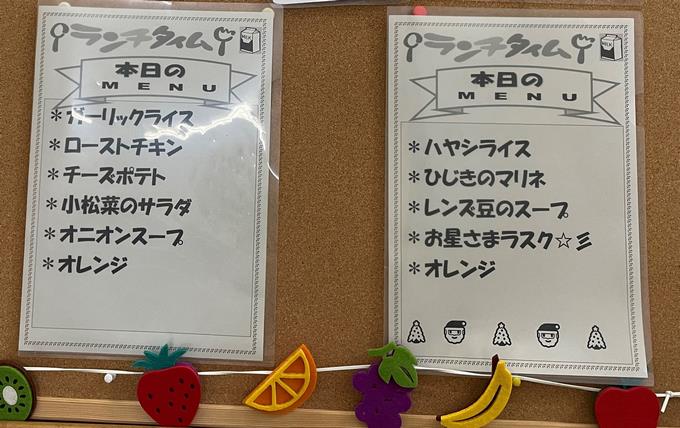 ランチタイム
MILK
本日の
MENU
*ガーリックライス
*ローストチキン
*チーズポテト
*小松菜のサラダ
*オニオンスープ
*オレンジ
ランチタイム
MILK
本日の
MENU
*ハヤシライス
*ひじきのマリネ
*レンズ豆のスープ
*お星さまラスク☆彡
*オレンジ